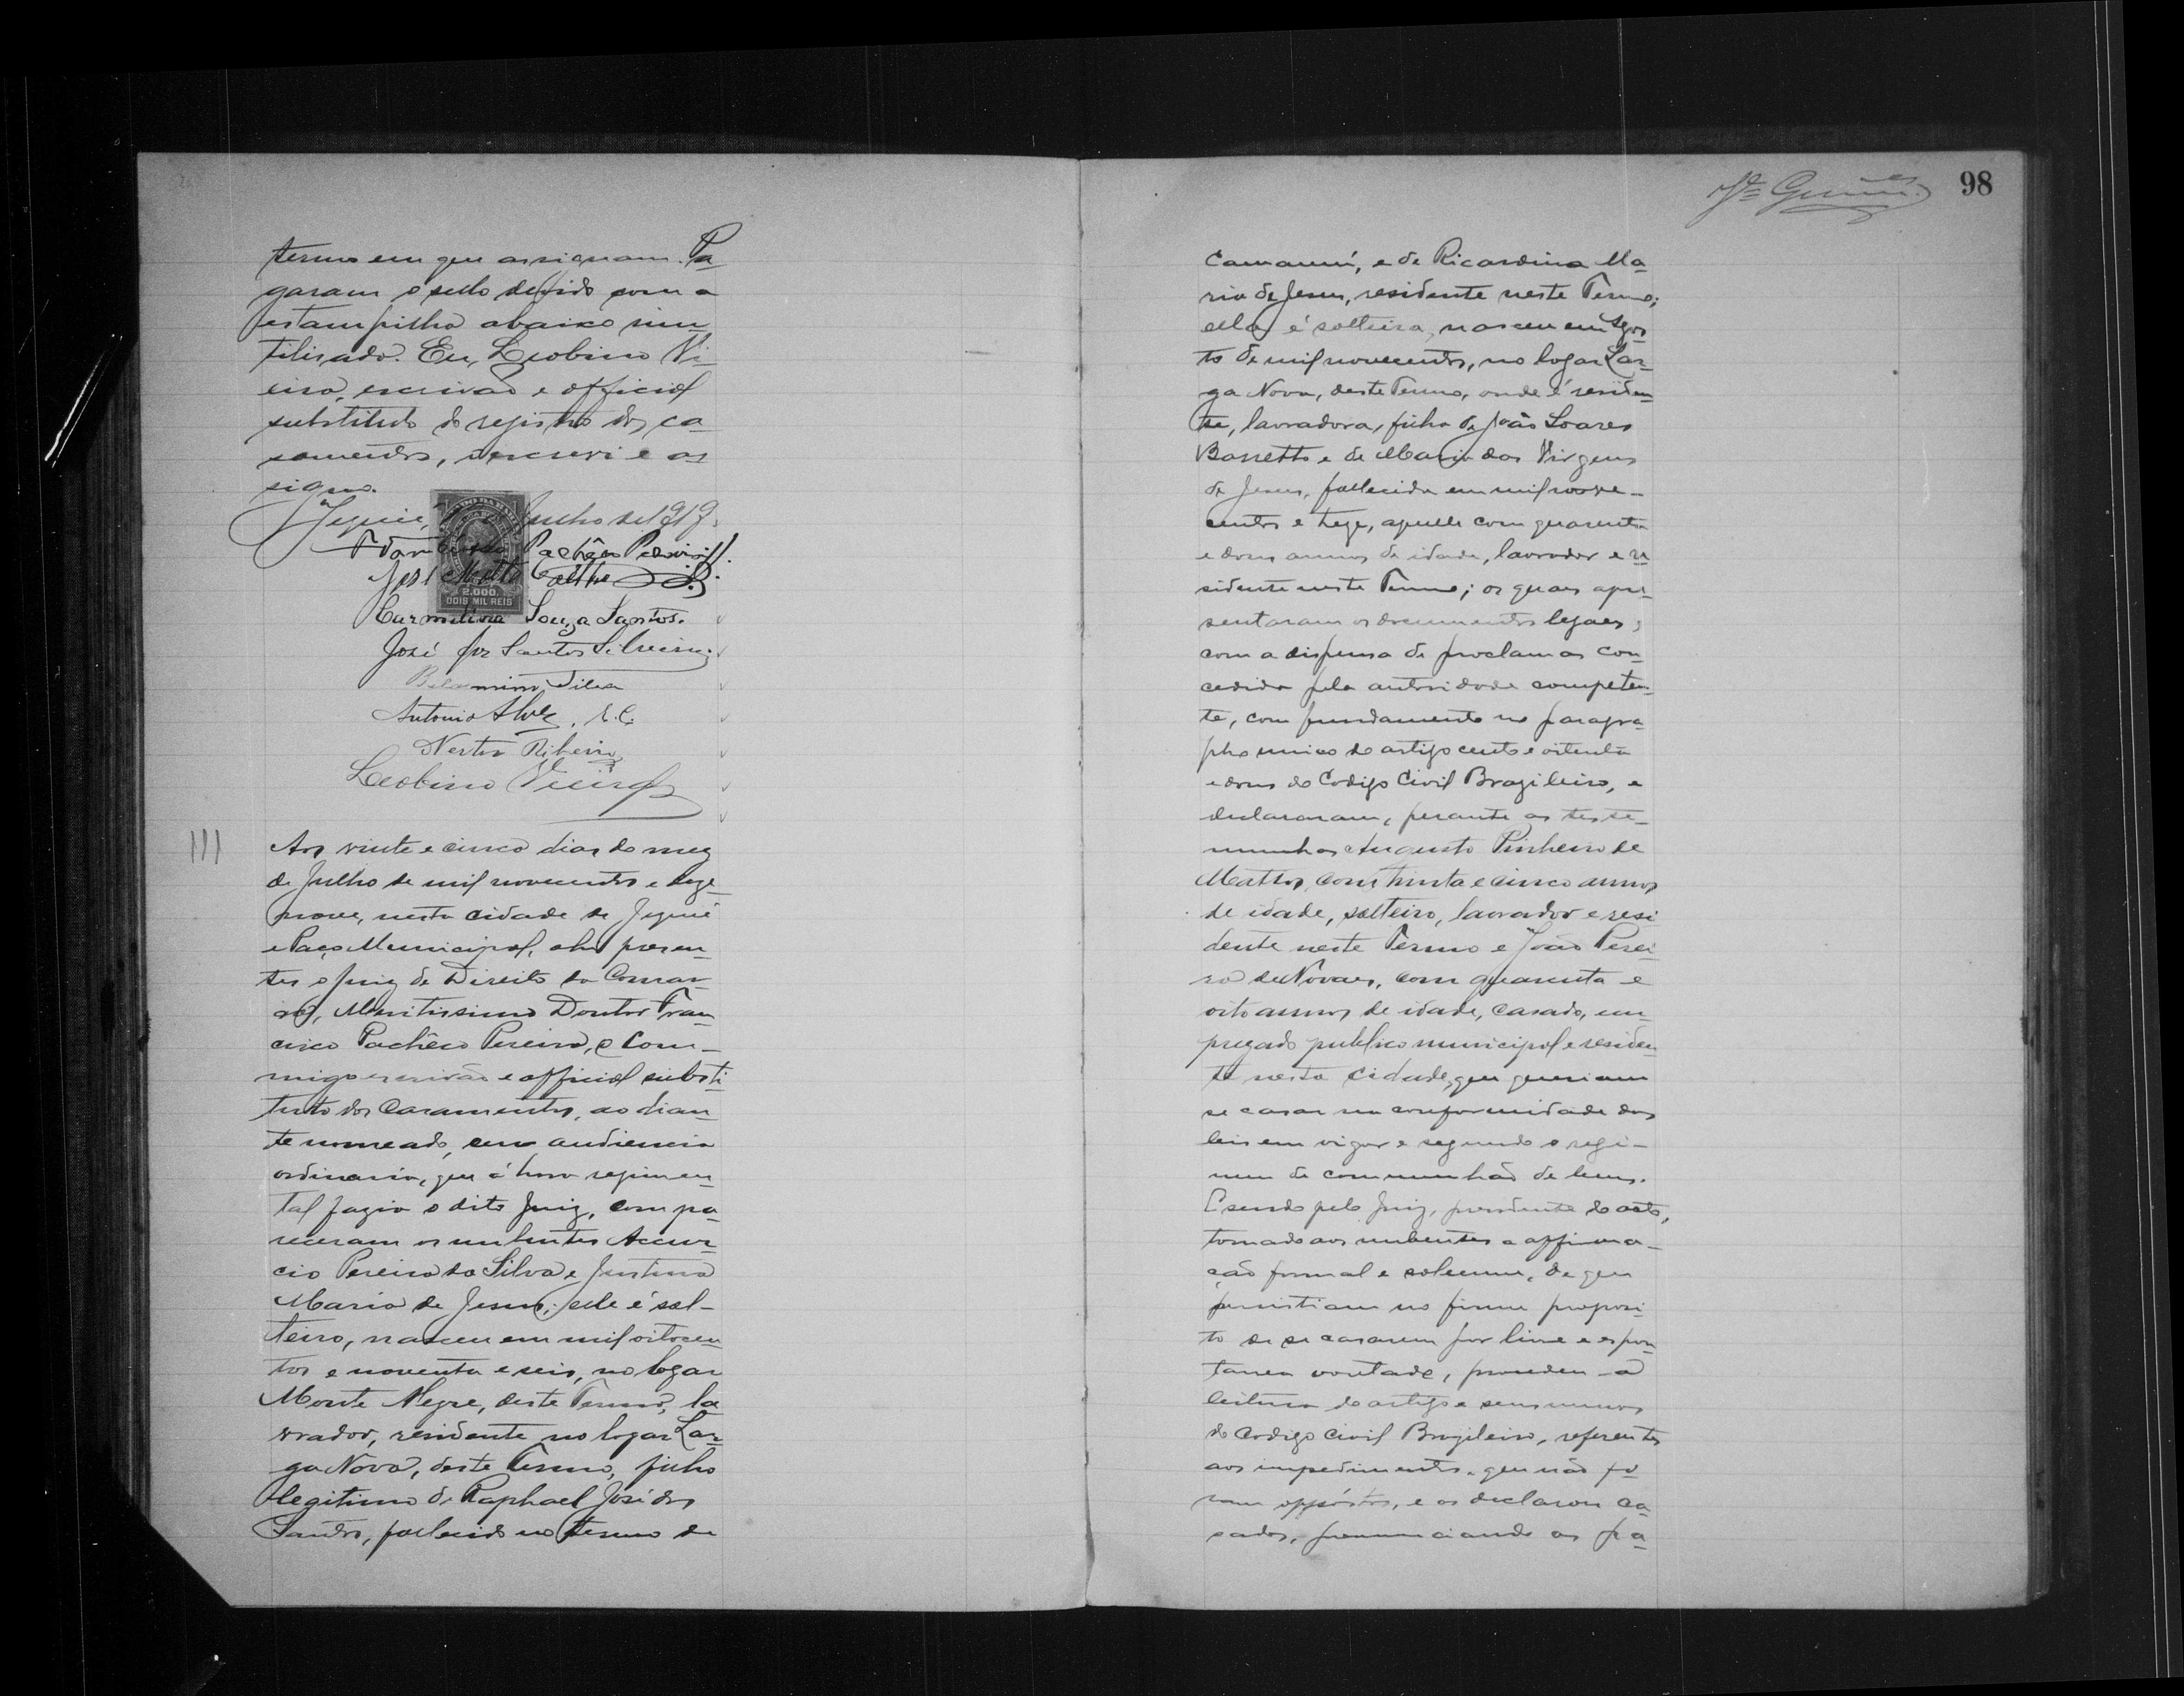 termo em que assignam. Pa-
garam o sello defido com a
estampilha abaixo inu-
tilisado. Eu, Leobino Vi-
eira, escrivão e official
substituto do registro dos ca-
samentos, o escrevi e as-
signo.
Jequié, Julho de 1919.
Francisco Pachêco Pereira
José Motta Coêlho
2.000.
DOIS MIL REIS
Carmelina Souza Santos.
José dos Santos Silveira
Belarmino Silva
Antonio Alves. S. C.
Nestor Ribeiro
Leobino Vieira
111
Aos vinte e cinco dias do mez
de Julho de mil novecentos e deze-
nove, nesta cidade de Jequié
e Paço Municipal, ahi presen-
tes o Juiz de Direito da Comar-
ca, Meritissimo Doutor Fran-
cisco Pachêco Pereira, e com-
migo escrivão e official substi-
tuto dos Casamentos, ao dian-
te nomeado, em audiencia
ordinaria, que á hora regimen-
tal fazia o dito Juiz, compa-
receram os nubentes Accur-
cio Pereira da Silva e Justina
Maria de Jesus; elle é sol-
teiro, nasceu em mil oitocen-
tos e noventa e seis, no logar
Monte Alegre, deste Termo, la-
vrador, residente no logar Lar-
ga Nova, deste Termo, filho
legitimo de Raphael José dos
Santos, fallecido no termo de
98
Camamú, e de Ricardina Ma-
ria de Jesus, residente neste Termo;
ella é solteira, nasceu em Agos-
to de mil novecentos, no logar Lar-
ga Nova, deste Termo, onde é residen-
te, lavradora, filha de João Soares
Barretto e de Maria das Virgens
de Jesus, fallecida em mil nove-
centos e treze, aquelle com quarenta
e dous annos de idade, lavrador e re-
sidente neste Termo; os quaes apre-
sentaram os documentos legaes,
com a dispensa de proclamas con-
cedida pela autoridade competen-
te, com fundamento no paragra-
pho unico do artigo cento e oitenta
e dous do Codigo Civil Brazileiro, e
declararam, perante as teste-
munhas Augusto Pinheiro de
Mattos, com trinta e cinco annos
de idade, solteiro, lavrador e resi-
dente neste Termo e João Perei-
ra de Novaes, com quarenta e
oito annos de idade, casado, em-
pregado publico municipal e residen-
te nesta cidade, que queriam
se casar na conformidade das
leis em vigor e segundo o regi-
men de communhão de bens.
E sendo pelo Juiz, presidente do acto,
tomado aos nubentes a affirma-
ção formal e solemne, de que
persistiam no firme proposi-
to de se casarem por livre e espon-
tanea vontade, procedeu-a
leitura do artigo e seus numeros
do Codigo Civil Brazileiro, referentes
aos impedimentos, que não fo-
ram oppóstos, e os declarou ca-
sados, pronunciando as pa-